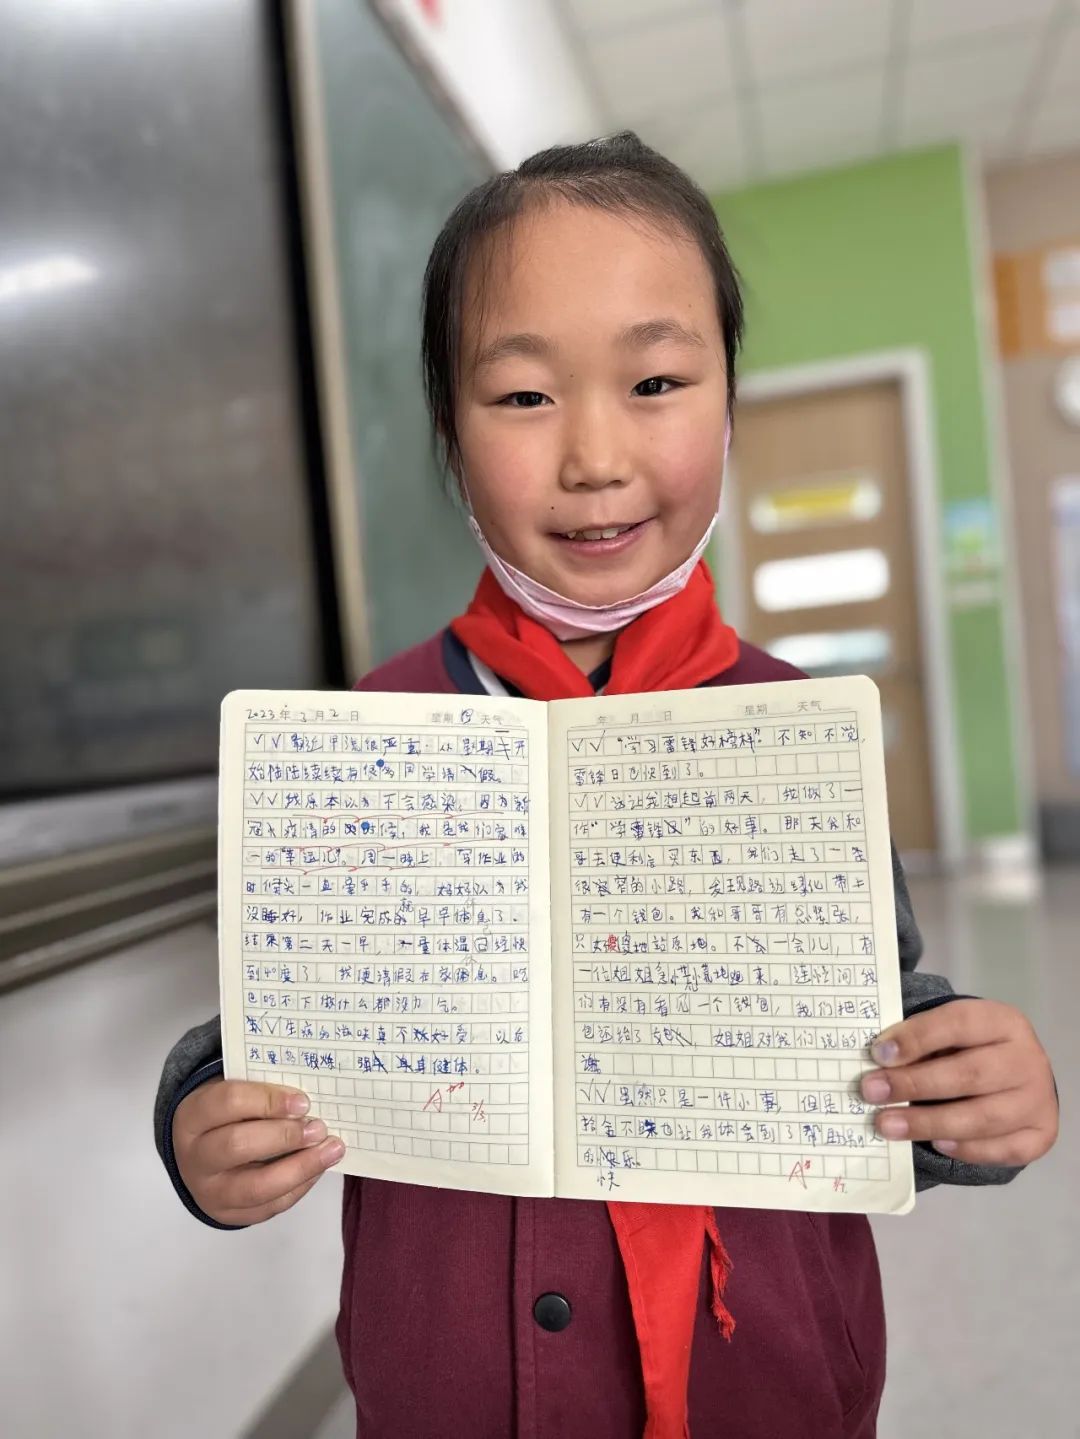 2023年3月2日 星期四 天气
✓✓最近甲流很严重.从星期一开
始陆陆续续有很多同学请假。
✓✓我原本以为不会感染,因为新
冠疫情的时候,我是我们家唯
一的"幸运儿"。周一晚上,写作业的
时候头一直晕乎乎的,妈妈以为我
没睡好,作业完成就早早休息了。
结果第二天一早,一量体温已经快
到40度了,我便请假在家休息。吃
也吃不下做什么都没力气。
✓✓生病的滋味真不好受,以后
我要多锻炼,强身健体。
A 3/3.
年 月 日 星期 天气
✓✓"学习雷锋好榜样"不知不觉,
雷锋日已快到了。
✓✓这让我想起前两天,我做了一
件"学雷锋"的好事。那天我和
哥去便利店买东西,我们走了一条
很窄的小路,发现路边绿化带上
有一个钱包。我和哥哥有点紧张,
只好傻傻地站原地。不一会儿,有
一位姐姐急忙慌慌地跑来。连忙问我
们有没有看见一个钱包,我们把钱
包还给了她,姐姐对我们说的谢
谢
✓✓虽然只是一件小事,但是这
拾金不昧也让我体会到了帮助别人
的快乐。
快
A